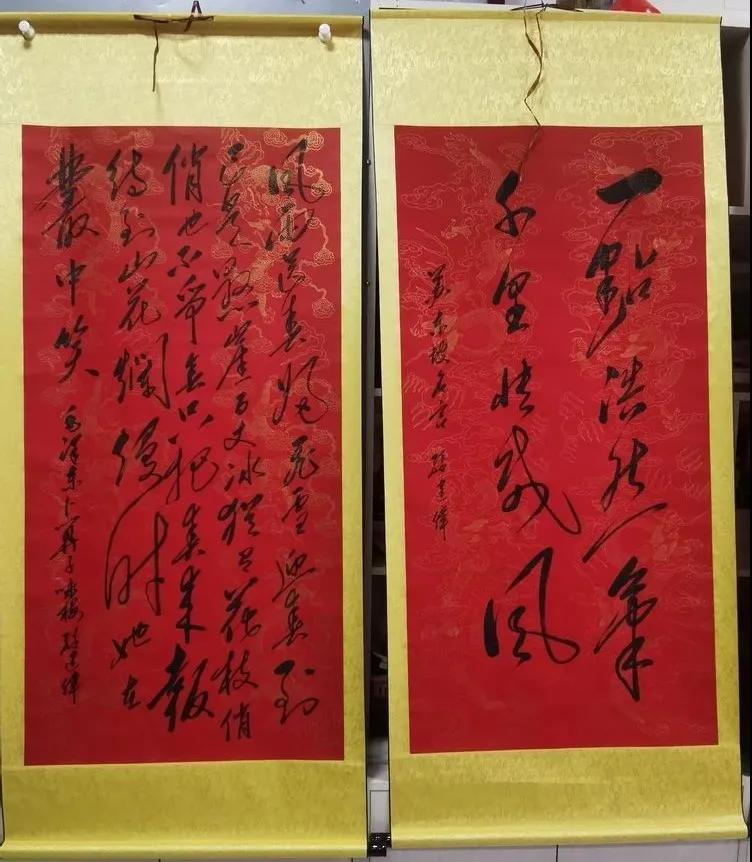 風雨送春归飛雪迎春到
已是懸崖百丈冰猶有花枝俏
俏也不爭春只把春来報
待到山花爛漫時她在
叢中笑
毛泽东卜算子咏梅 建偉
一點浩然氣
千里快哉風
苏东坡名言 建偉